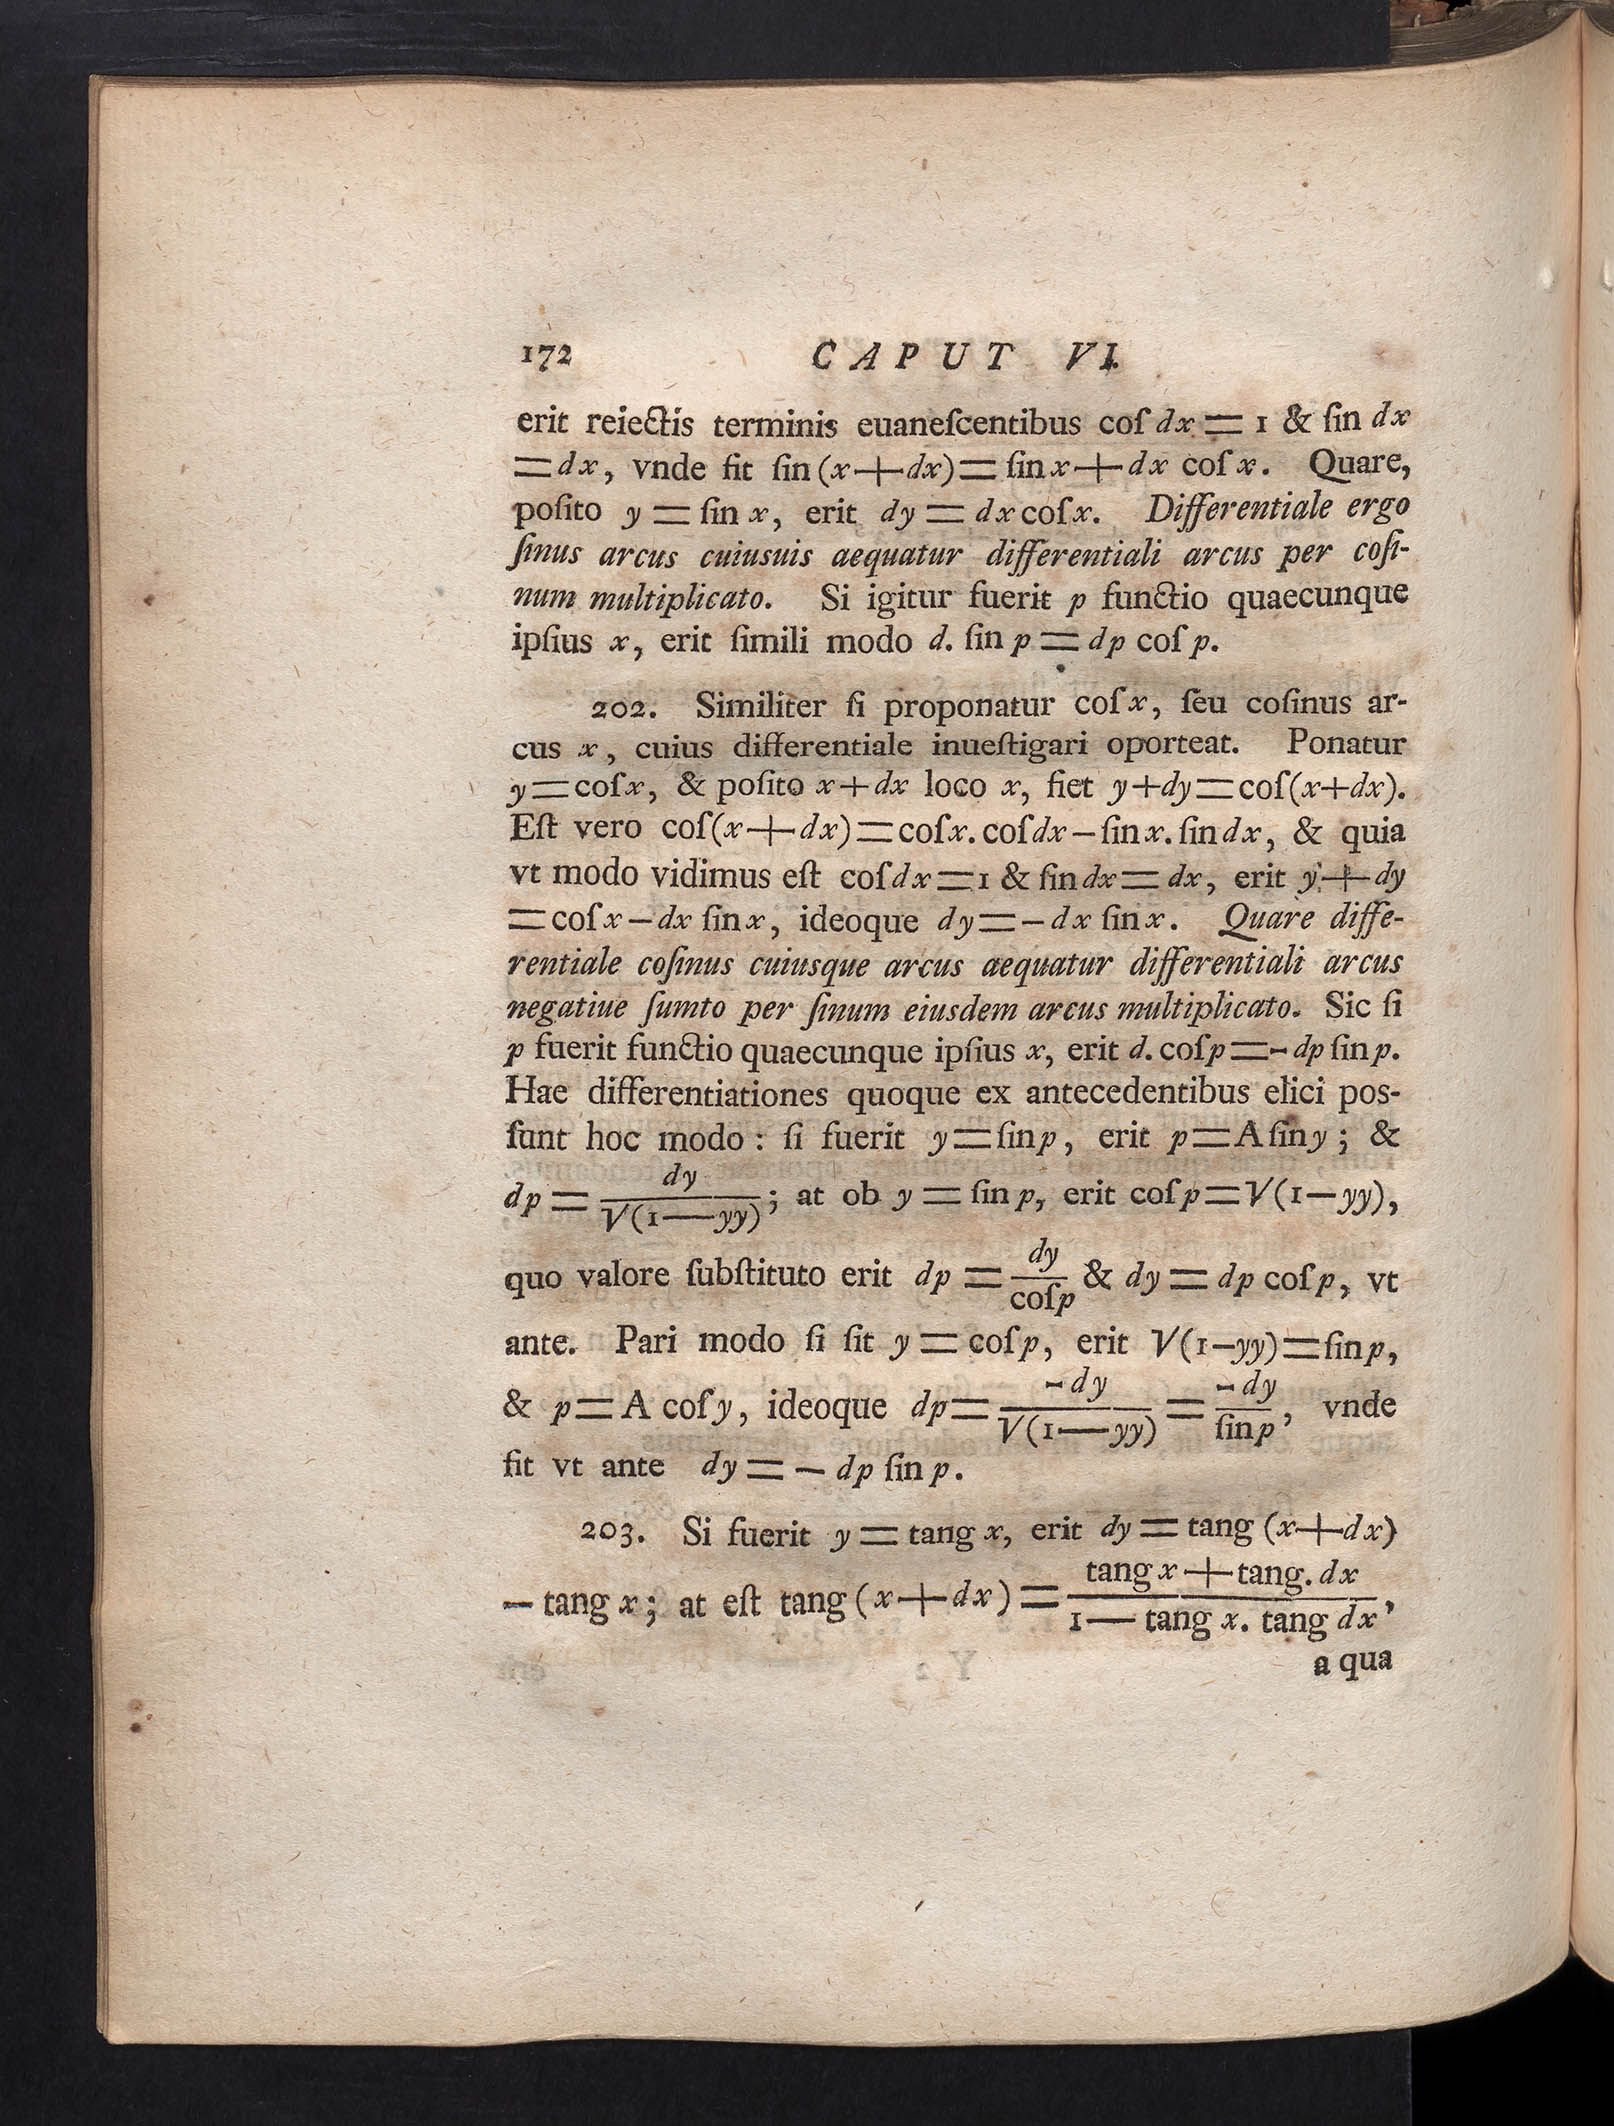 172 CAPUT VI.
erit reiectis terminis euaneſcentibus coſ dx = 1 & ſin dx
= dx, vnde fit ſin (x + dx) = ſin x + dx coſ x. Quare,
poſito y = ſin x, erit dy = dx coſ x. Differentiale ergo
ſinus arcus cuiusuis aequatur differentiali arcus per coſi-
num multiplicato. Si igitur fuerit p functio quaecunque
ipſius x, erit ſimili modo d. ſin p = dp coſ p.
202. Similiter ſi proponatur coſ x, ſeu coſinus ar-
cus x, cuius differentiale inueſtigari oporteat. Ponatur
y = coſ x, & poſito x + dx loco x, fiet y + dy = coſ (x + dx).
Eſt vero coſ (x + dx) = coſ x. coſ dx − ſin x. ſin dx, & quia
vt modo vidimus eſt coſ dx = 1 & ſin dx = dx, erit y + dy
= coſ x − dx ſin x, ideoque dy = − dx ſin x. Quare diffe-
rentiale coſinus cuiusque arcus aequatur differentiali arcus
negatiue ſumto per ſinum eiusdem arcus multiplicato. Sic ſi
p fuerit functio quaecunque ipſius x, erit d. coſ p = - dp ſin p.
Hae differentiationes quoque ex antecedentibus elici pos-
ſunt hoc modo : ſi fuerit y = ſin p, erit p = A ſin y ; &
dp = dy / √(1 — yy) ; at ob y = ſin p, erit coſ p = √(1 — yy),
quo valore ſubſtituto erit dp = dy / coſ p & dy = dp coſ p, vt
ante. Pari modo ſi ſit y = coſ p, erit √(1 − yy) = ſin p,
& p = A coſ y, ideoque dp = - dy / √(1 — yy) = - dy / ſin p, vnde
fit vt ante dy = − dp ſin p.
203. Si fuerit y = tang x, erit dy = tang (x + dx)
− tang x ; at eſt tang (x + dx) = tang x + tang. dx / 1 — tang x. tang dx,
a qua